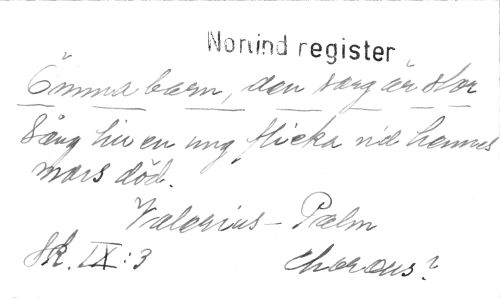 Norlind register
Ömma barn, den sorg är stor
Sång hvi en ung flicka vid hennes
mors död.
Valerius - Palm
Sk. IX:3 Chorous?